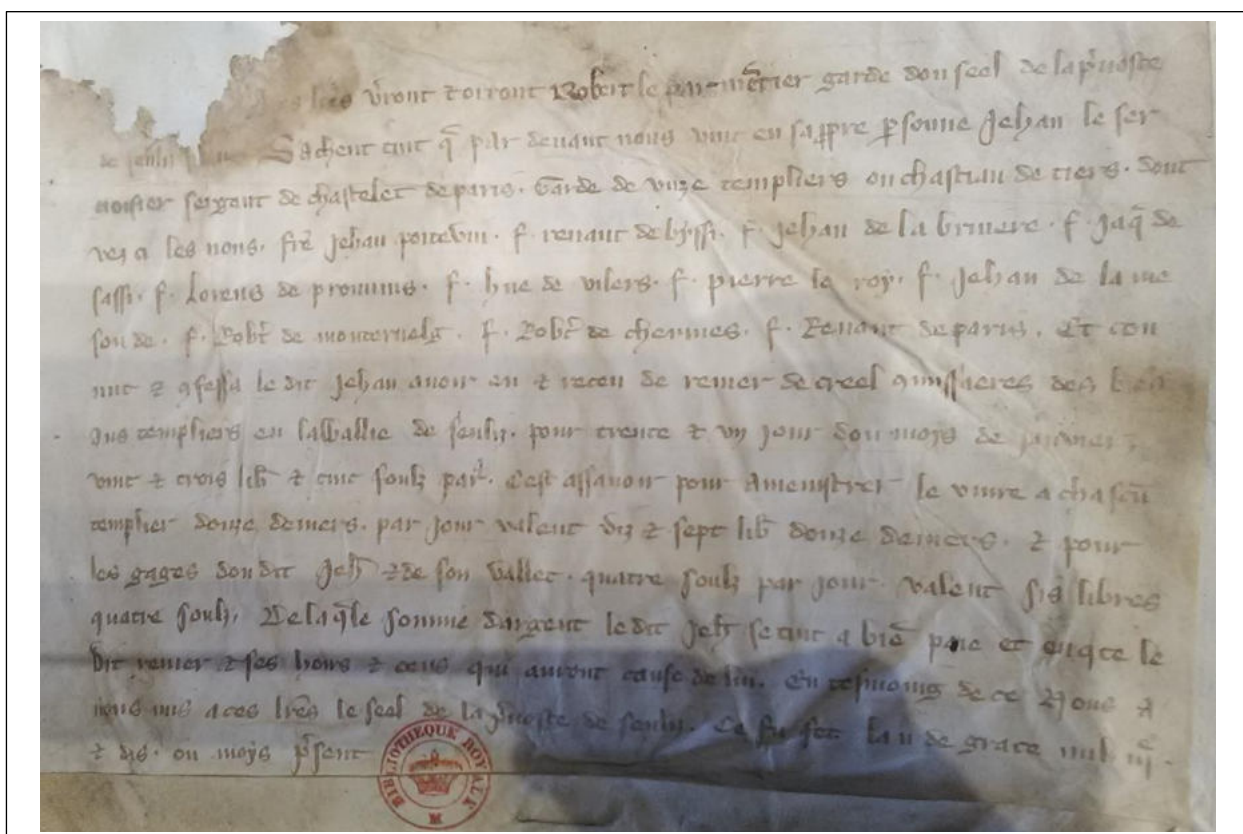 lrēs vront ⁊ orront Robert le garde dou seel de la pvoste
de senliz Sachent tuit q̄ par devant nous vint en sa ppre psonne Jehan le ser
sergant de chastelet de paris. Garde de unze templiers ou chastiau de tiers. dont
vez ci les nons. frē Jehan poitevin. f. renaut de . f. Jehan de la bruiere. f. Jaq̄ de
sassi. f. Lorens de provins. f. hue de vilers. f. pierre le roy. f. Jehan de la me
son de. f. Robt de . f. Robt de chermes. f. Renaut de paris. Et con
nut ⁊ 9fessa le dit Jehan avoir eu ⁊ receu de renier de creel 9missaeres des biens
aus templiers en la ballie de senliz. pour trente ⁊ un jour dou moys de jenvier
vint ⁊ trois lib ⁊ cinc soulz par. C'est assavoir pour amenistrer le vivre a chascū
templier douze deniers. par jour valent diz ⁊ sept lib douze deniers. ⁊ pour
les gages dou dit Jeh ⁊ de son vallet. quatre soulz par jour. valent sis libres
quatre soulz. De laq̄le somme d'argent le dit Jeh se tint a biē paie et quite le
dit renier ⁊ ses hoirs ⁊ ceus qui auront cause de lui. En tesmoing de ce Nous a
vons mis a ces lrēs le seel de la pvoste de senliz. Ce fu fet l'an de grace mil iijc
⁊ dis. ou moys psent
BIBLIOTHEQUE ROYALE